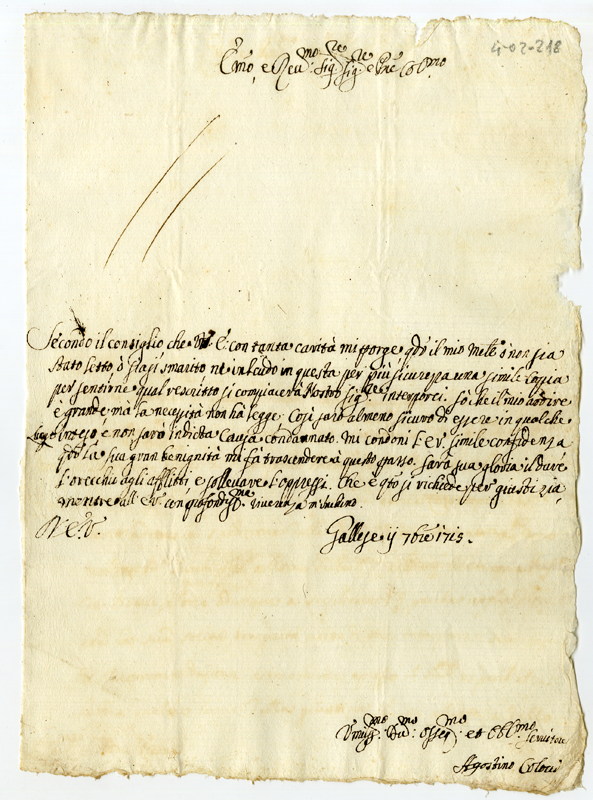 4-02-218
Emo, e Reumo: Sigre Sigre e Pne Colmo.
Secondo il consiglio che V. E. con tanta carità mi porge, qdo il mio Mele ò non sia
stato letto, ò siasi smarito ne includo in questa per più sicurezza una simile Copia
per sentirne qual rescritto si compiacerà Nostro Sigre interporci. Sò che il mio ardire
è grande, ma la necessità non hà legge. Così sarò almeno sicuro di essere in qualche
inteso, e non sarò indicta Causa condannato. Mi condoni l'E.V. simile confidenza
la sua gran benignità mi fà trascendere à questo passo. Sarà sua gloria il dare
l'orecchio agli afflitti e sollevare l'oppressi. Che è qto si richiede per giustizia,
mentre all'E.V. con profondisma riverenza m'inchino.
Di V. E.
Gallese ij 7bre 1715.
Vmiso: Diuo: Osseqmo et Oblmo Servitore
Agostino